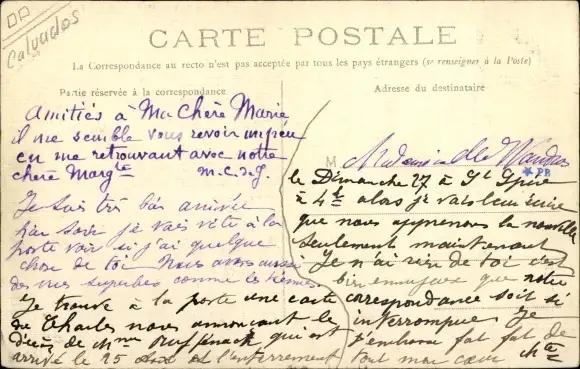 Calvados
CARTE POSTALE
La Correspondance au recto n'est pas acceptée par tous les pays étrangers (se renseigner à la Poste)
Partie réservée à la correspondance
Adresse du destinataire
Amitiés à Ma Chère Marie
il me semble vous revoir un peu
en me retrouvant avec notre
chère Margte M. C. de J.
Je suis très bien arrivée
hier soir je vais vite à la
poste voir si j'ai quelque
chose de toi Nous avons aussi
des vues superbes comme les tiennes
Je trouve à la poste une carte
de Charles nous annonçant le
décès de Mme qui est
arrivé le 25 et l'enterrement
M Mademoiselle
PB
le Dimanche 27 à St
à 4h alors je vais leur écrire
que nous apprenons la nouvelle
seulement maintenant
Je n'ai rien de toi c'est
bien ennuyeux que notre
correspondance soit si
interrompue Je
t'embrasse de
tout mon cœur Mte